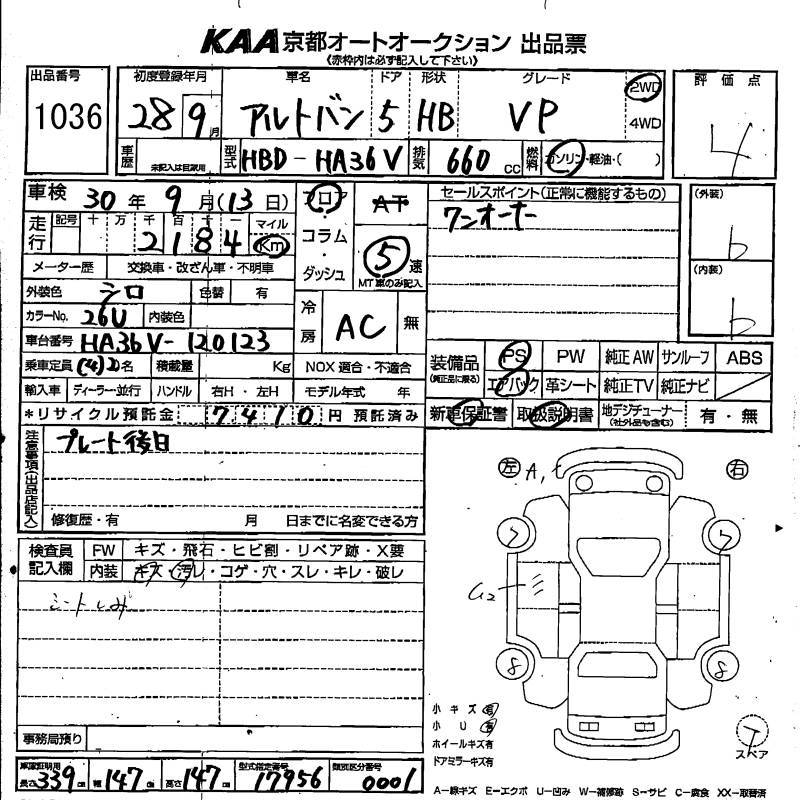 KAA 京都オートオークション 出品票
《赤枠内は必ず記入して下さい》
出品番号 1036
初度登録年月 28 9月
車名 アルトバン
ドア 5
形状 HB
グレード VP
2WD
4WD
評価点 4
車歴 未記入は自家用
型式 HBD-HA36V
排気 660 cc
燃料 ガソリン・軽油・( )
車検 30年 9月(13日)
走行 記号 十 万 千 百 十 一 マイル
2184 Km
メーター歴 交換車・改ざん車・不明車
外装色 シロ 色替 有
カラーNo. 26U 内装色
車台番号 HA36V-120123
乗車定員 (4)2名 積載量 Kg
輸入車 ディーラー・並行 ハンドル 右H・左H
*リサイクル預託金 7410円 預託済み
フロア
コラム
・
ダッシュ
AT
5 速
MT車のみ記入
冷房 AC 無
NOX 適合・不適合
モデル年式 年
セールスポイント(正常に機能するもの)
ワンオーナー
(外装) b
(内装) b
装備品 (純正品に限る)
PS PW 純正AW サンルーフ ABS
エアバック 革シート 純正TV 純正ナビ
新車保証書 取扱説明書 地デジチューナー (社外品も含む) 有・無
注意事項(出品店記入)
プレート後日
修復歴・有 月 日までに名変できる方
検査員記入欄
FW キズ・飛石・ヒビ割・リペア跡・X要
内装 キズ・汚レ・コゲ・穴・スレ・キレ・破レ
シートしみ
事務局預り
左 A,
右
7 7
G2
8 8
小キズ 有
小U 有
ホイールキズ有
ドアミラーキズ有
T
スペア
車庫証明用 長さ 339 cm 幅 147 cm 高さ 147 cm
型式指定番号 17956
類別区分番号 0001
A-線キズ E-エクボ U-凹み W-補修跡 S-サビ C-腐食 XX-取替済